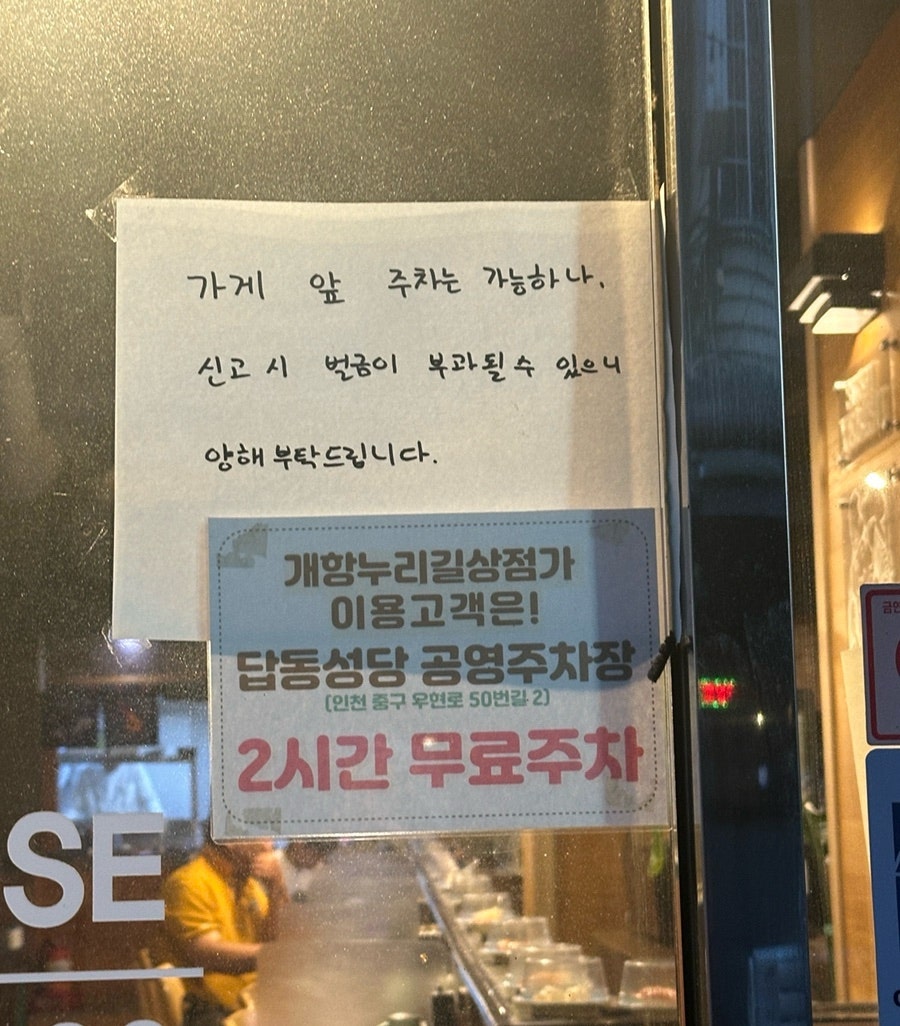 가게 앞 주차는 가능하나,
신고 시 벌금이 부과될 수 있으니
양해 부탁드립니다.
개항누리길상점가
이용고객은!
답동성당 공영주차장
(인천 중구 우현로 50번길 2)
2시간 무료주차
SE
금연